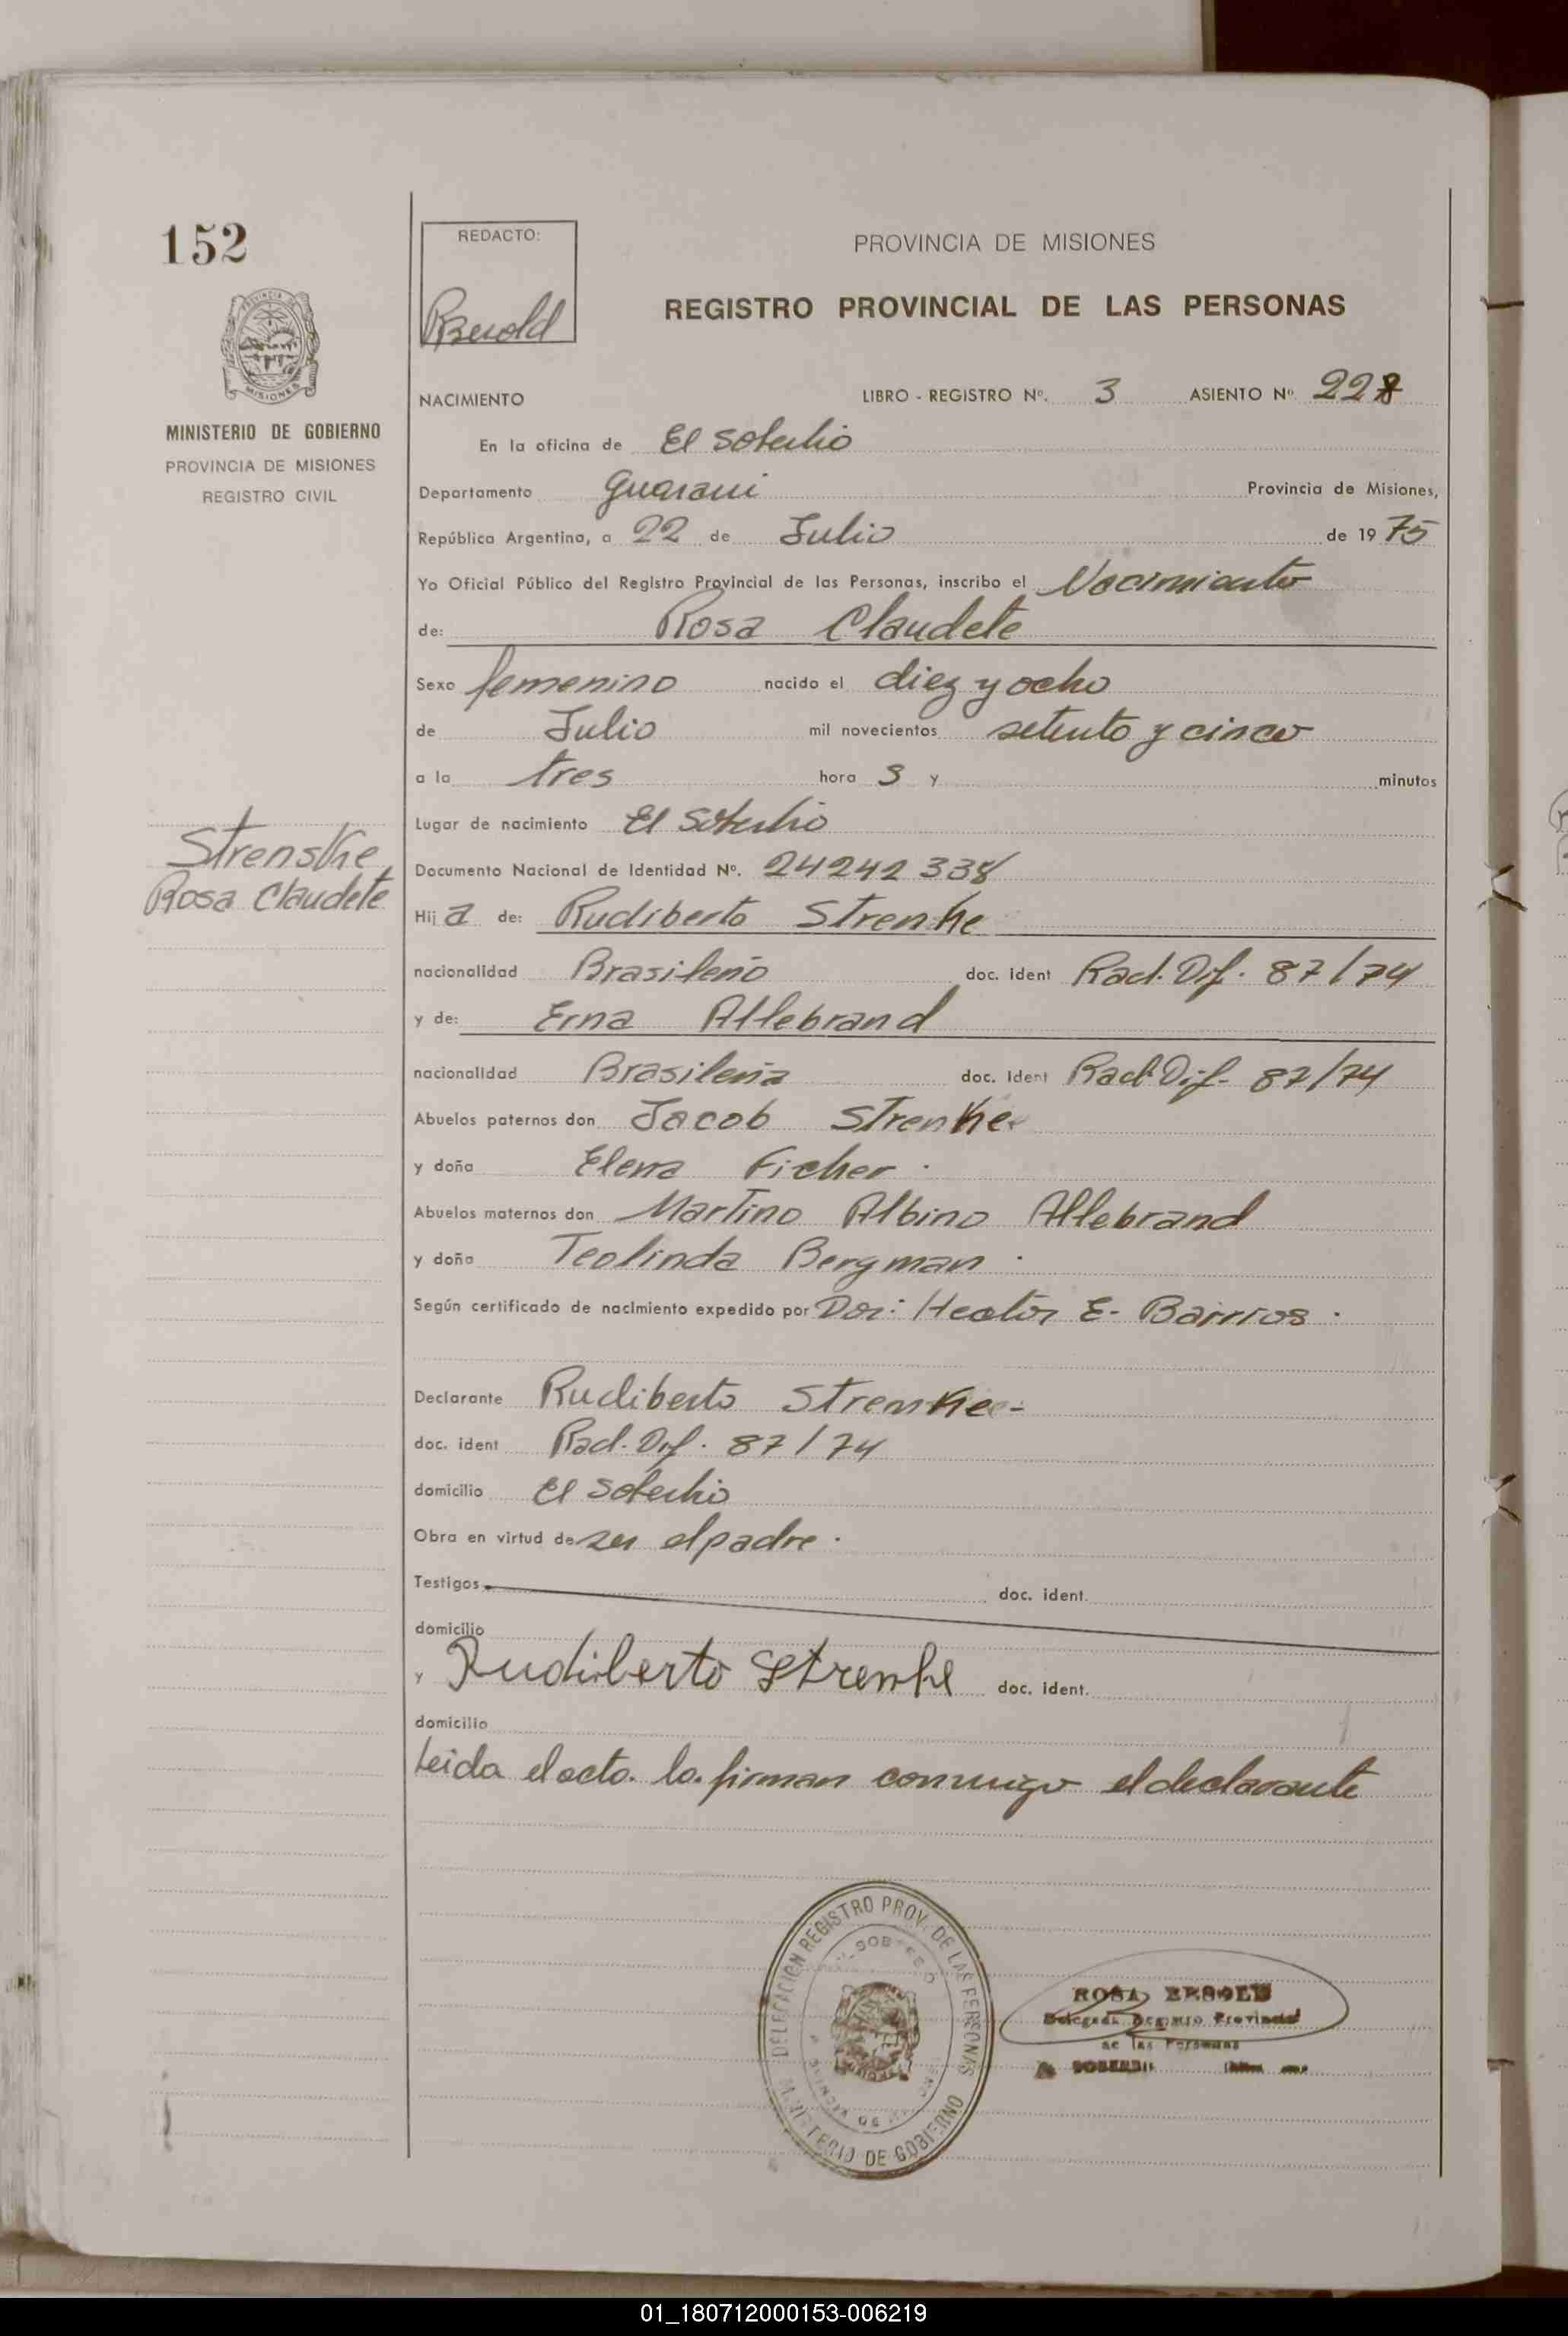 152
REDACTO:
PROVINCIA DE MISIONES
REGISTRO PROVINCIAL DE LAS PERSONAS
MINISTERIO DE GOBIERNO
PROVINCIA DE MISIONES
REGISTRO CIVIL
NACIMIENTO LIBRO - REGISTRO Nº. 3 ASIENTO Nº 228
En la oficina de El Soberbio
Departamento Guarani Provincia de Misiones,
República Argentina, a 22 de Julio de 1975
Yo Oficial Público del Registro Provincial de las Personas, inscribo el Nacimiento
de: Rosa Claudete
Sexo femenino nacido el diez y ocho
de Julio mil novecientos setenta y cinco
a la tres hora 3 y minutos
Lugar de nacimiento El Soberbio
Strenske
Rosa Claudete
Documento Nacional de Identidad Nº. 24242338
Hija de: Rudiberto Strenke
nacionalidad Brasileño doc. ident Rad. Dif. 87/74
y de: Erna Allebrand
nacionalidad Brasileña doc. ident Rad. Dif. 87/74
Abuelos paternos don Jacob Strenke
y doña Elena Ficher.
Abuelos maternos don Martino Albino Allebrand
y doña Teolinda Bergman.
Según certificado de nacimiento expedido por Dor: Hector E. Barrios.
Declarante Rudiberto Strenke-
doc. ident Rad. Dif. 87/74
domicilio El Soberbio
Obra en virtud de ser el padre.
Testigos doc. ident.
domicilio
y Rudiberto Strenke doc. ident.
domicilio
Leida el acta. la firman conmigo el declarante
DELEGACION REGISTRO PROV. DE LAS PERSONAS
MINISTERIO DE GOBIERNO
ROSA
Delegada Registro Provincial
de las Personas
01_180712000153-006219